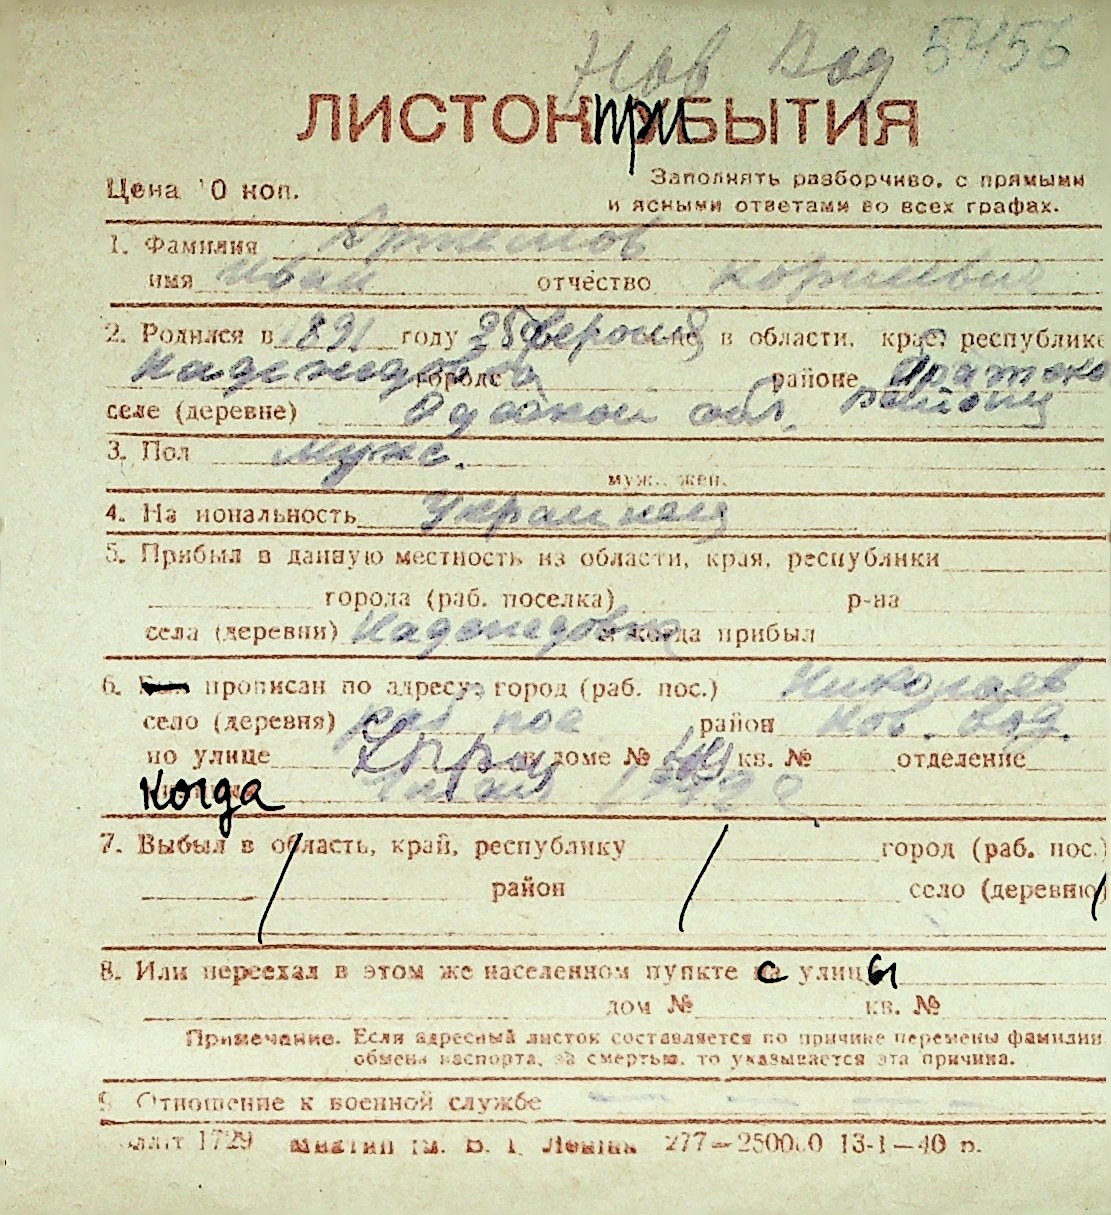 Нов Вод 5456
ЛИСТОК ПРИБЫТИЯ
Цена 10 коп.
Заполнять разборчиво, с прямыми
и ясными ответами во всех графах.
1. Фамилия Артемов
имя Иван отчество
2. Родился в 1891 году 25 февроля в области, крае, республике
Надеждовка городе районе
селе (деревне) Одеской обл. району
3. Пол мужс.
муж., жен.
4. Национальность Украинец
5. Прибыл в данную местность из области, края, республики
города (раб. поселка) р-на
села (деревни) Надеждовка и когда прибыл
6. прописан по адресу: город (раб. пос.) Николаев
село (деревня) раб пос район Нов. Вод.
по улице в доме № кв. № отделение
когда
7. Выбыл в область, край, республику город (раб. пос.)
район село (деревню)
8. Или переехал в этом же населенном пункте с улицы
дом № кв. №
Примечание. Если адресный листок составляется по причине перемены фамилии
обмена паспорта, за смертью, то указывается эта причина.
9. Отношение к военной службе — — — —
1729 им. В. І. Леніна 277—250000 13-1—40 р.